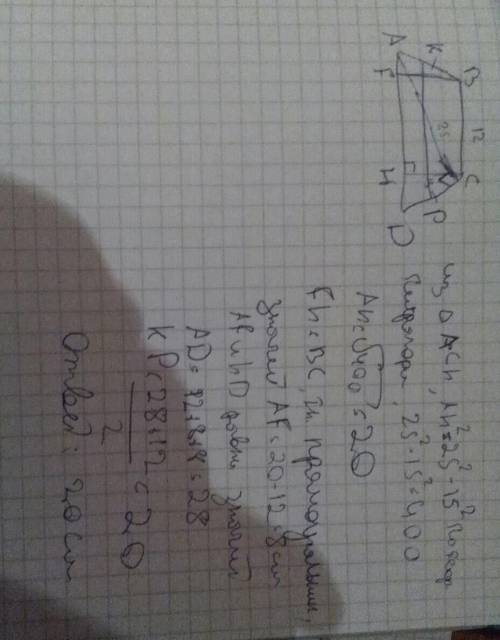 B 12 C
K 25 M P
A F H D
из Δ ACH, AH²=25²-15² по теор
Пифагора, 25²-15²=400
AH=√400=20
FH=BC, т.к прямоугольник,
значит AF=20-12=8см
AF и HD равны значит
AD=12+8+8=28
KP=28+12/2=20
Ответ: 20см